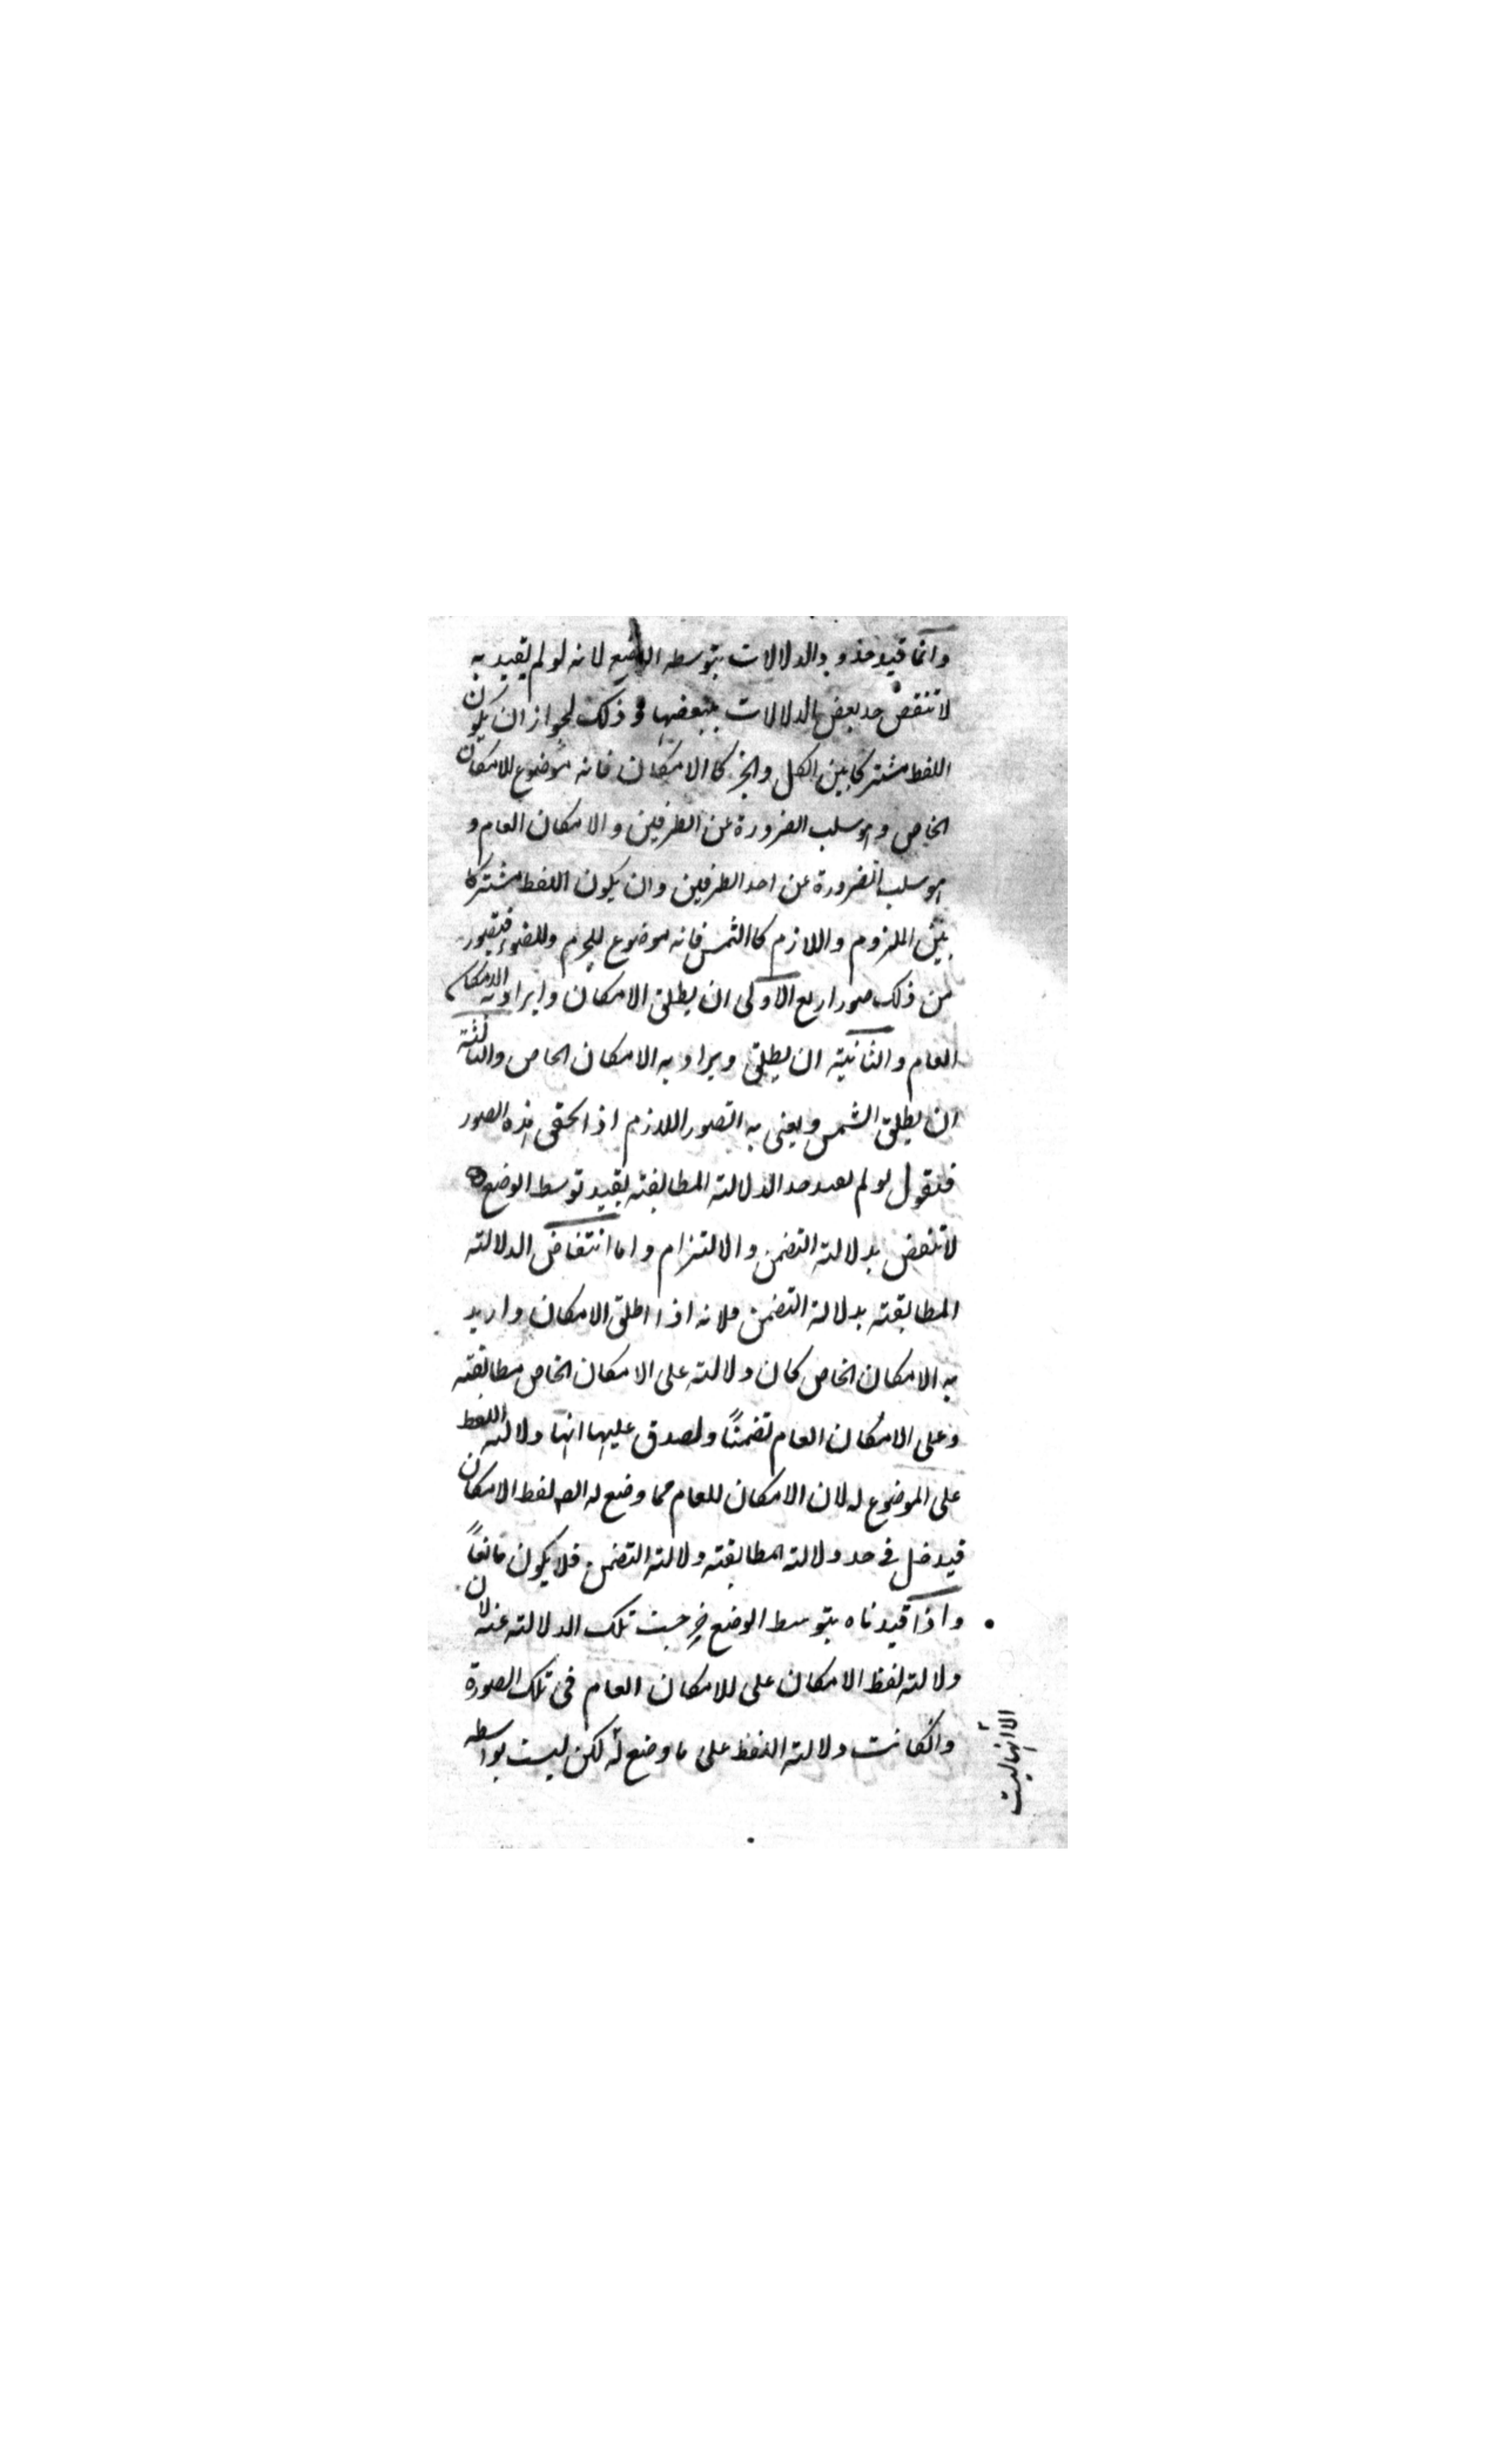 وانما قيد حدود الدلالات بتوسط الوضع لانه لو لم يقيد به
لانتقض حد بعض الدلالات ببعضها و ذلك لجواز ان يكون
اللفظ مشتركا بين الكل والجزء كالامكان فانه موضوع للامكان
الخاص وهو سلب الضرورة عن الطرفين والامكان العام و
هو سلب الضرورة عن احد الطرفين وان يكون اللفظ مشتركا
بين الملزوم واللازم كالشمس فانه موضوع للجرم وللضوء فيتصور
من ذلك صور اربع الاولى ان يطلق الامكان وايراد به الامكان
العام والثانية ان يطلق ويراد به الامكان الخاص والثالثة
ان يطلق الشمس ويعنى به التصور اللازم اذا تحقق هذه الصور
فنقول لو لم يقيد حد الدلالته المطابقته بقيد توسط الوضع
لانتقض بدلالة التضمن والالتزام واما انتقاض الدلالته
المطابقته بدلالة التضمن فلانه اذا اطلق الامكان واريد
به الامكان الخاص كان دلالته على الامكان الخاص مطابقته
وعلى الامكان العام تضمناً ولصدق عليها انها دلالته اللفظ
على الموضوع له لان الامكان للعام مما وضع له لفظ الامكان
فيدخل في حد دلالته المطابقته دلالته التضمن فلا يكون مانعاً
واذا قيدناه بتوسط الوضع خرجت تلك الدلالته عنه لان
دلالته لفظ الامكان على للامكان العام فى تلك الصورة
وانكانت دلالته اللفظ على ما وضع له لكن ليست بواسطه
الا انها ليست